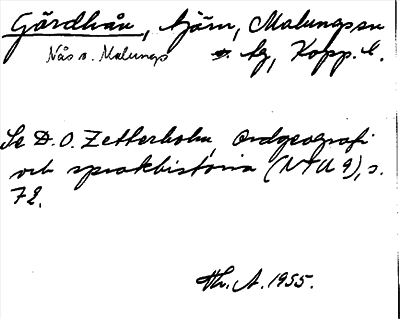 Gårdhån, tjärn, Malungs sn
Nås o. Malungs tg, Kopp. l.
Se D. O. Zetterholm, Ordgeografi
och språkhistoria (NTU 9), s.
72.
Hr. A. 1955.